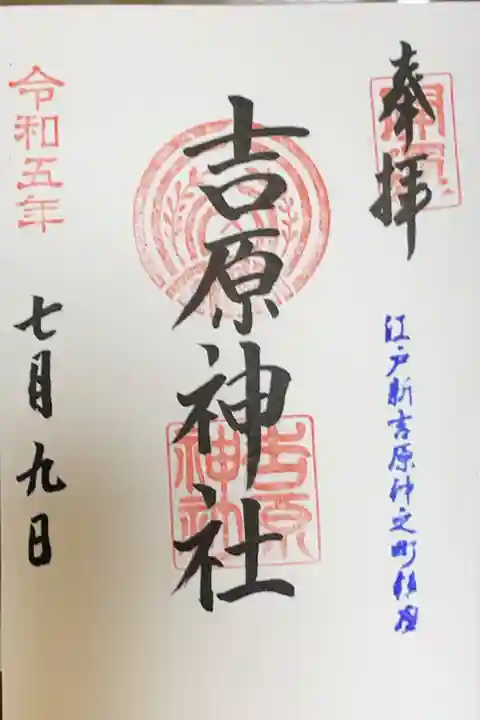 奉拝
江戸新吉原仲之町鎮座
吉原神社
吉原
神社
令和五年
七月九日